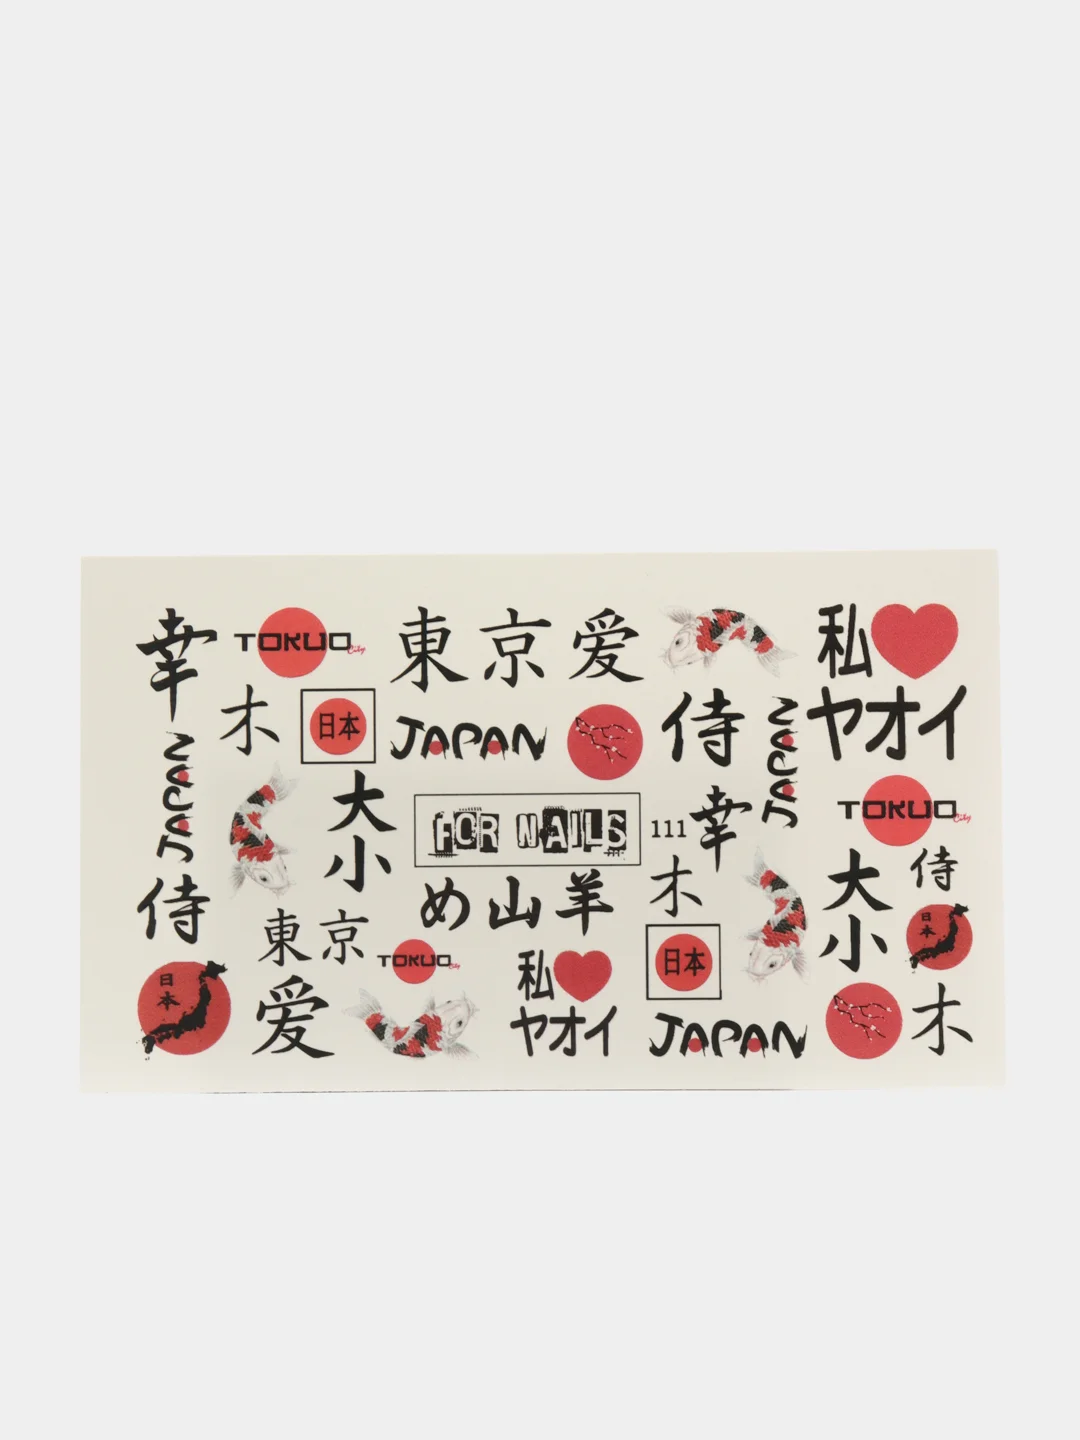 幸
TOKUO City
東京
愛
私
ヤオイ
木
日本
JAPAN
侍
JAPAN
JAPAN
大
小
FOR NAILS
111
幸
TOKUO City
侍
め山羊
木
大
小
侍
東京
TOKUO City
私
ヤオイ
日本
日本
日本
愛
JAPAN
木